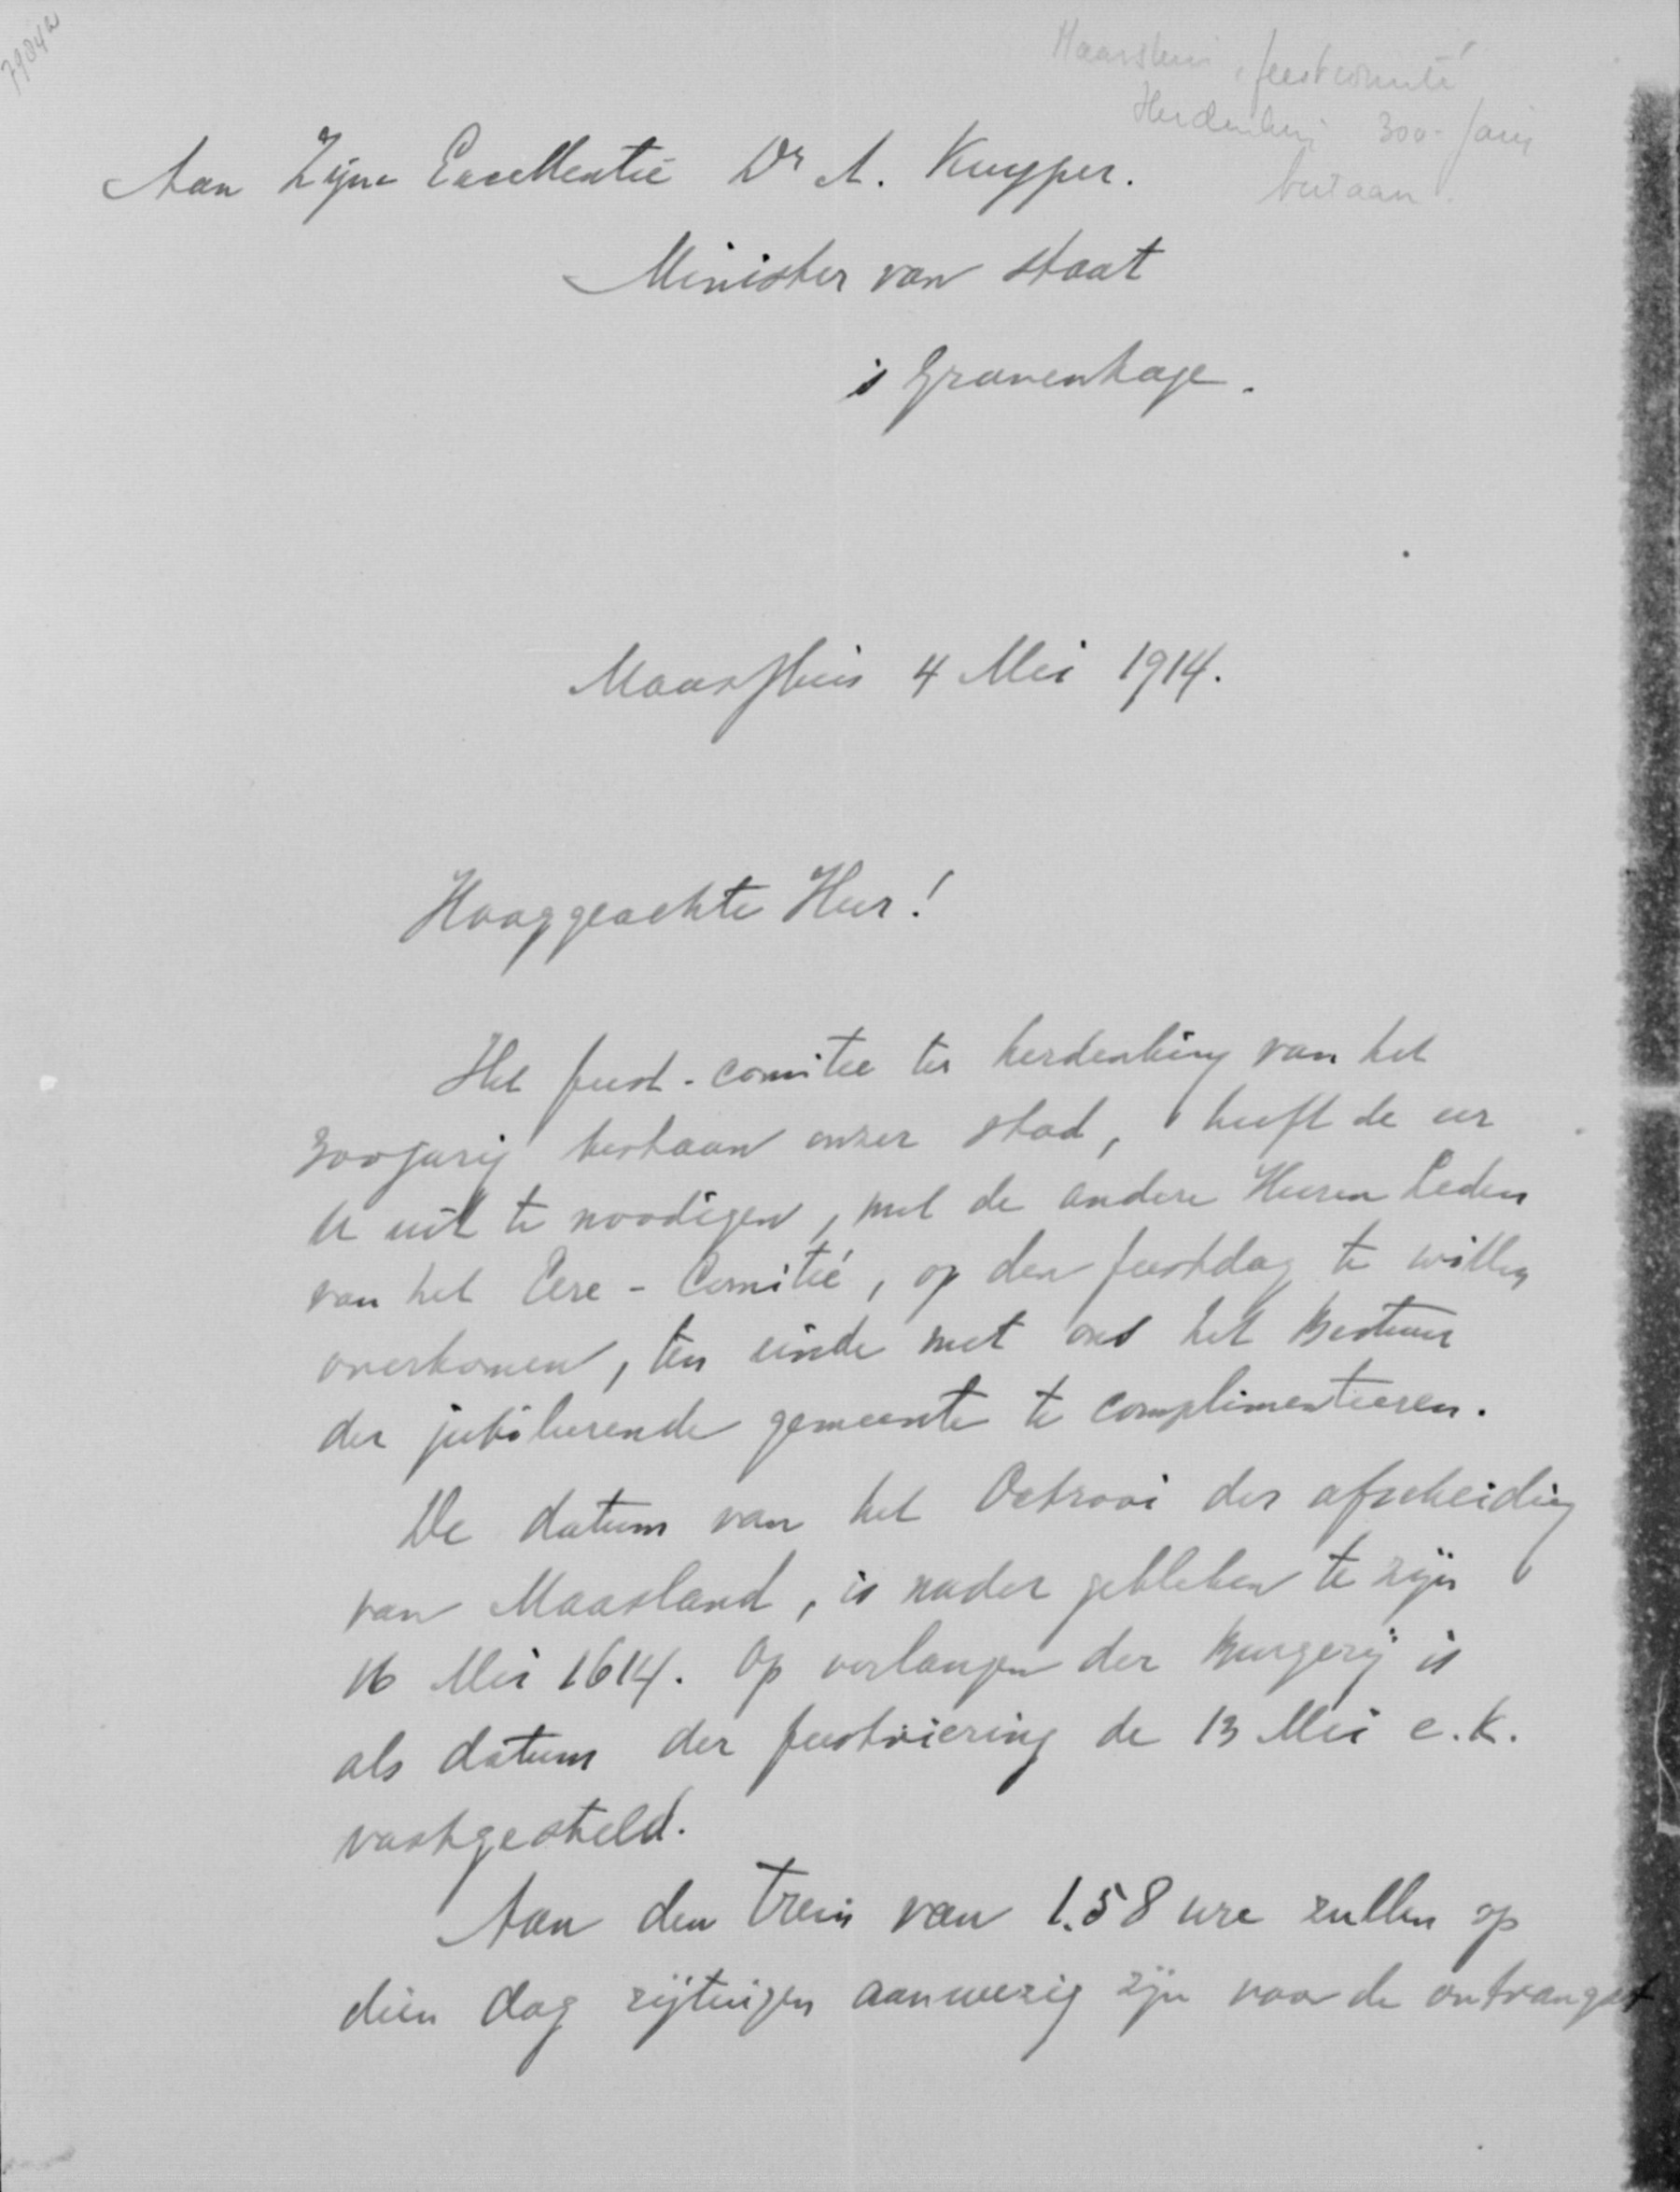 7904w
Maassluis, feestcomité
Herdenking 300-jarig
bestaan.
Aan Zijne Excellentie Dr A. Kuyper.
Minister van Staat
's Gravenhage.
Maassluis 4 Mei 1914.
Hooggeachte Heer!
Het feest-comitee ter herdenking van het
300jarig bestaan onzer stad, heeft de eer
U uit te noodigen, met de andere Heeren Leden
van het Eere-Comité, op den feestdag te willen
overkomen, ten einde met ons het Bestuur
der jubileerende gemeente te complimenteeren.
De datum van het Octrooi der afscheiding
van Maasland, is nader gebleken te zijn
16 Mei 1614. Op verlangen der Burgerij is
als datum der feestviering de 13 Mei e.k.
vastgesteld.
Aan den trein van 1.58 ure zullen op
dien dag rijtuigen aanwezig zijn voor de ontvangst